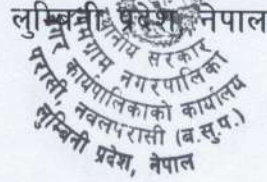 लुम्बिनी प्रदेश, नेपाल
स्थानीय सरकार
नगरपालिका
नगर कार्यपालिकाको कार्यालय
परासी, नवलपरासी (ब.सु.प.)
लुम्बिनी प्रदेश, नेपाल